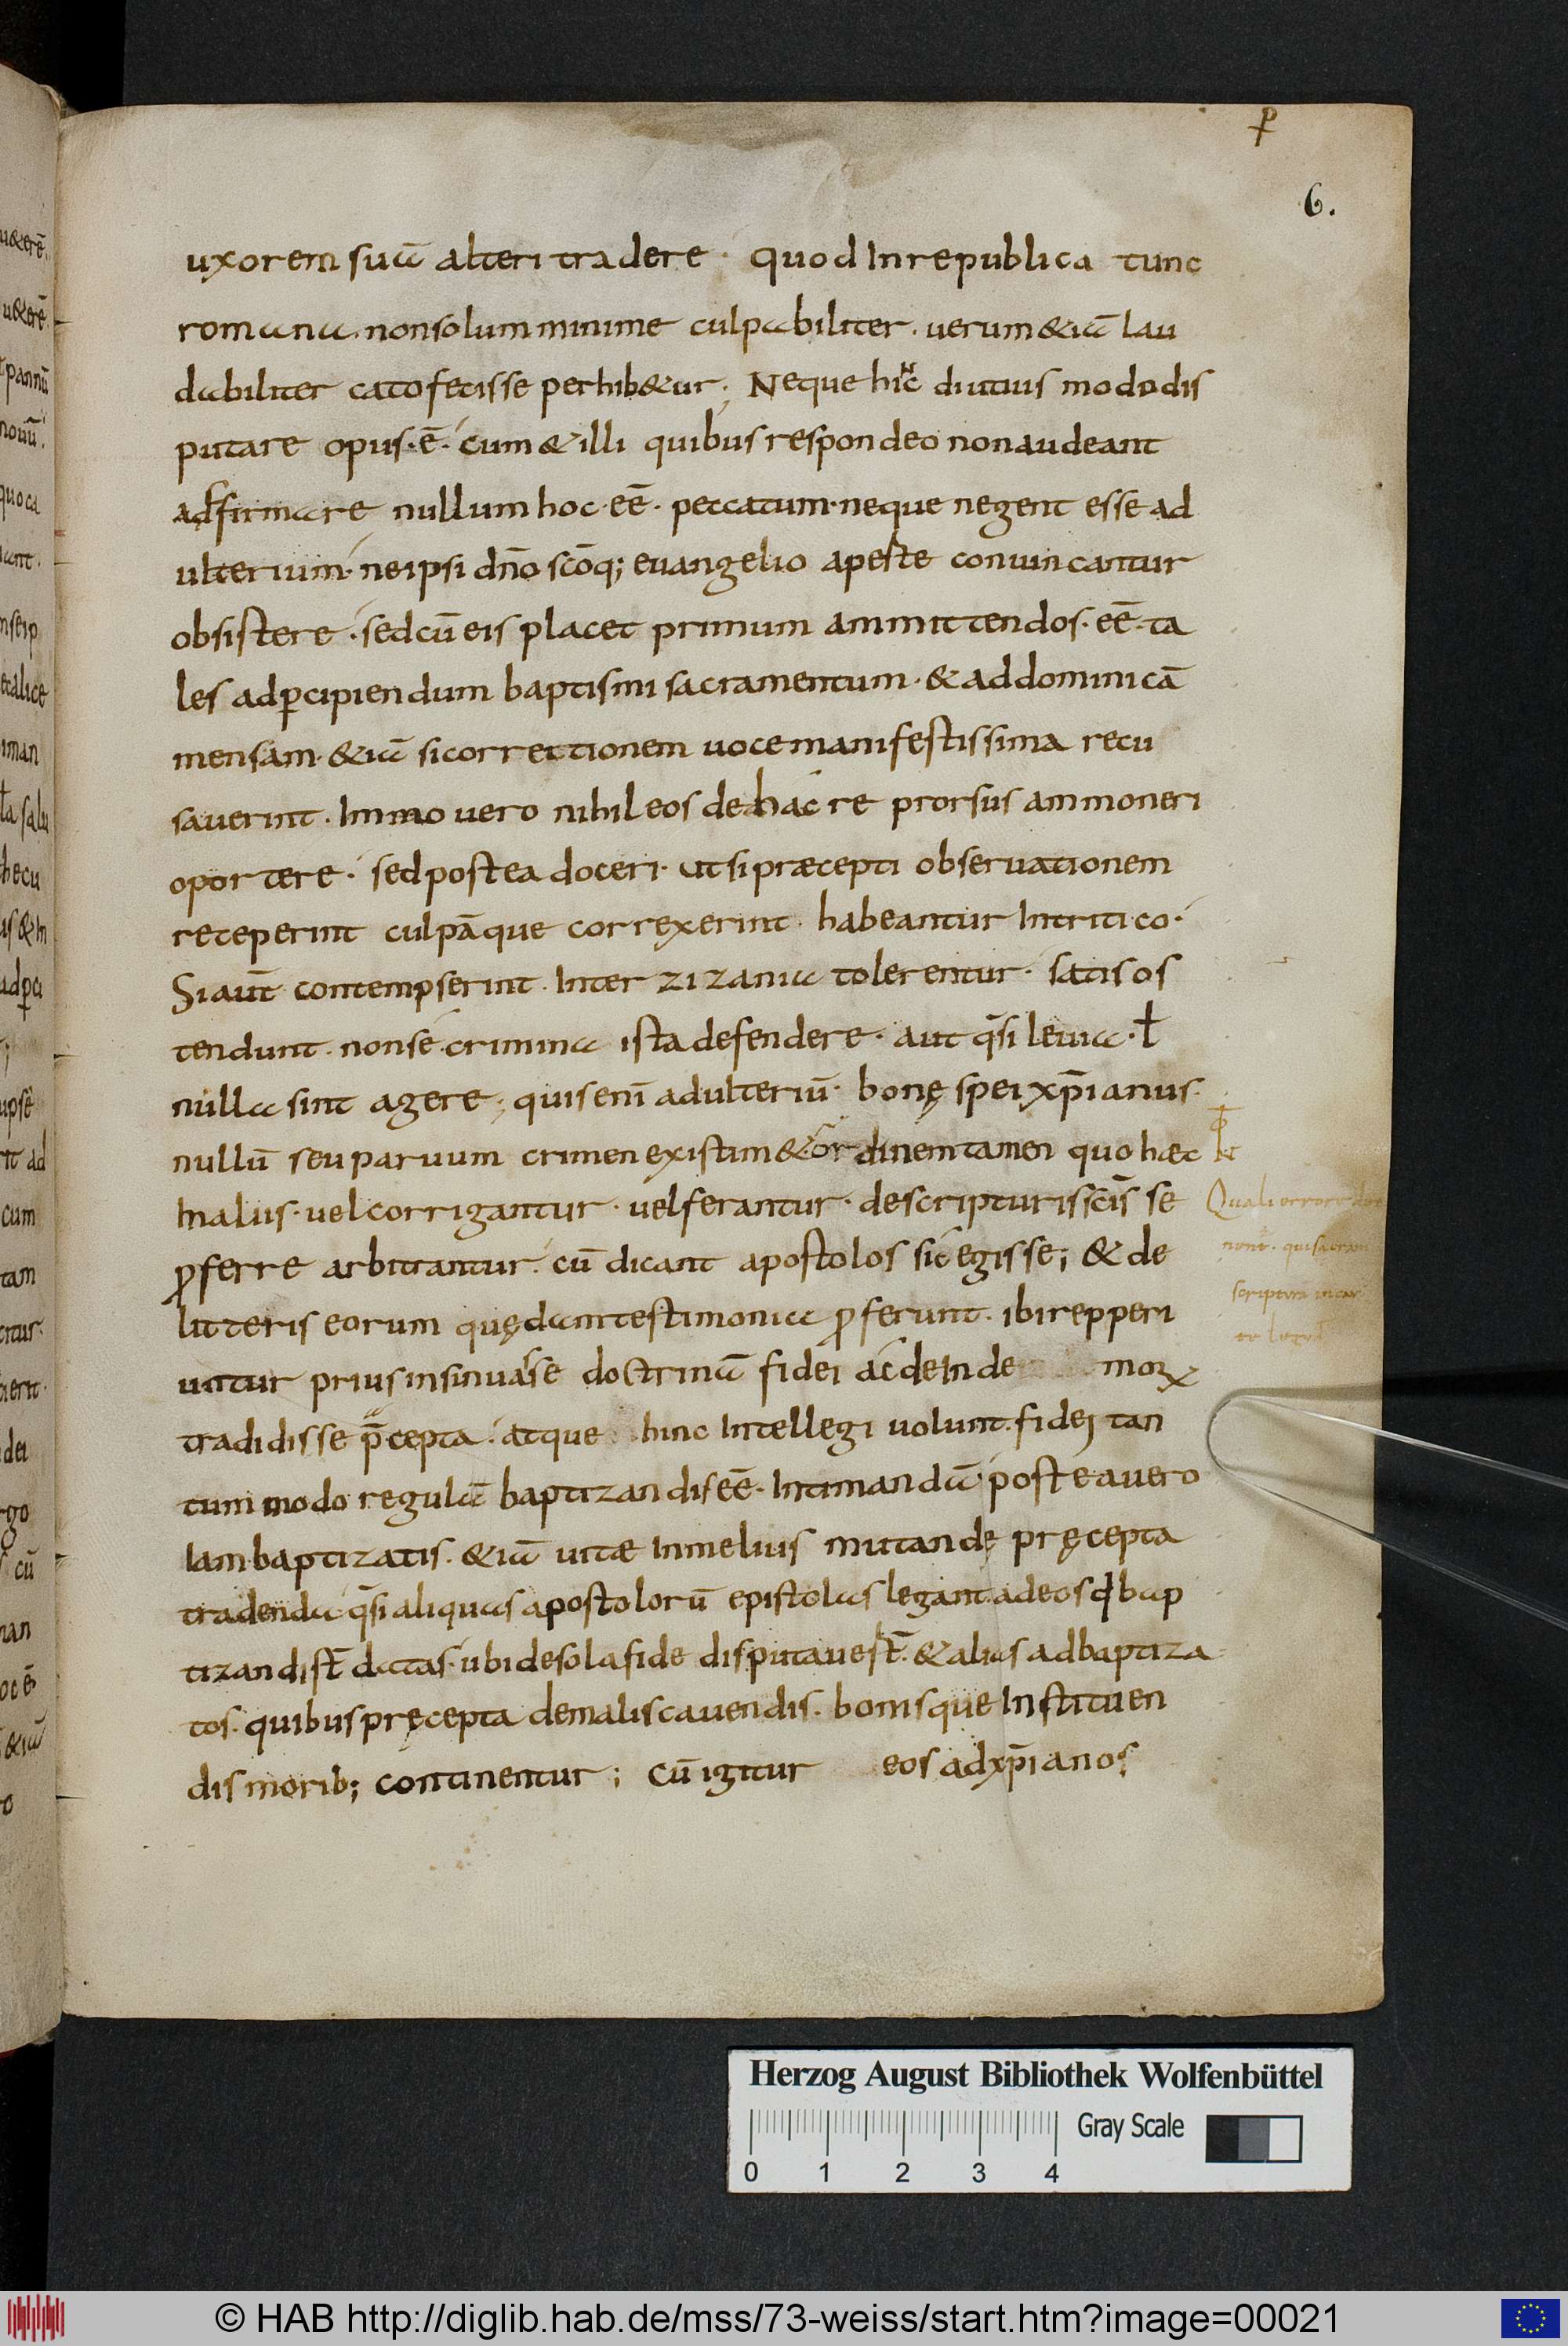 6.
uxorem suā alteri tradere · quod In republica tunc
romana. non solum minime culpabiliter. uerum &iā lau
dabiliter cato fecisse perhib&ur. Neque hic diutius modo dis
putare opus·ē· cum & illi quibus respondeo non audeant
adfirmare nullum hoc·eē· peccatum· neque negent esse ad
ulterium· ne ipsi dn̄o sc̄oq; euangelio aperte conuincantur
obsistere · sed cū eis placet primum ammittendos·eē·ta
les ad ꝑcipiendum baptismi sacramentum · & ad dominicā
mensam· &iā si correctionem uoce manifestissima recu
sauerint. Immo uero nihil eos de hac re prorsus ammoneri
oportere · sed postea doceri· ut si præcepti obseruationem
receperint culpāque correxerint· habeantur In tritico·
Si aut̄ contempserint. Inter zizania tolerentur· satis os
tendunt. non se crimina ista defendere · aut q̄si leuia·ł
nulla sint agere; quis enī adulteriū· bonę spei xp̄ianus·
nullū seu paruum crimen existim&· ordinem tamen quo hæc
In aliis· uel corrigantur· uel ferantur· de scripturis sc̄is se
ꝓferre arbitrantur· cū dicant apostolos sic egisse; & de
litteris eorum quędam testimonia ꝓferunt. ibi repperi
untur prius insinuasse doctrinā fidei ac deInde moꝝ
tradidisse p̄cepta. atque hinc Intellegi uolunt. fidei tan
tum modo regulā baptizandis eē· Intimandā· postea uero
Iam baptizatis. &iā uitæ In melius mutandę pręcepta
tradenda q̄si aliquas apostolorū epistolas legant ad eos qͥ bap
tizandi st̄ datas· ubi de sola fide disputaue st̄. & alias ad baptiza
tos· quibus pręcepta de malis cauendis. bonisque Instituen
dis morib; continentur; Cū igitur eos ad xp̄ianos
Herzog August Bibliothek Wolfenbüttel
Gray Scale
0 1 2 3 4
© HAB http://diglib.hab.de/mss/73-weiss/start.htm?image=00021